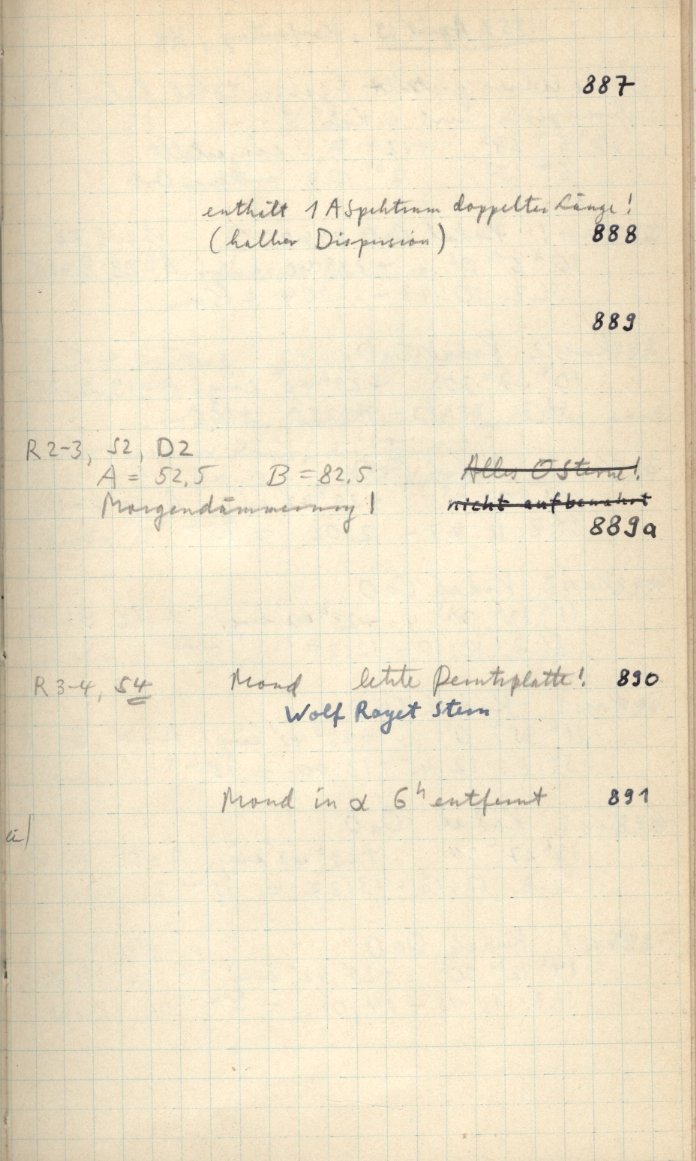 887
enthält 1 A Spektrum doppelter Länge!
(halber Dispersion) 888
889
R 2-3, S2, D2
A = 52,5 B = 82,5 Alles O Sterne!
Morgendämmerung! nicht aufbewahrt
889a
R 3-4, S4 Mond letzte Perutzplatte! 890
Wolf Rayet Stern
Mond in α 6h entfernt 891